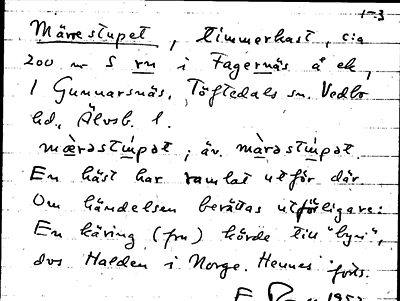 1-3
Märrestupet, timmerkast, cia
200 m S rn i Fagernäs å ek,
1 Gunnarsnäs, Töftedals sn. Vedbo
hd, Älvsb. l.
mærəstu̇pət, äv. màrəstu̇pət.
En häst har ramlat utför där
Om händelsen berättas utförligare:
En käring (fru) körde till "byn",
dvs Halden i Norge. Hennes